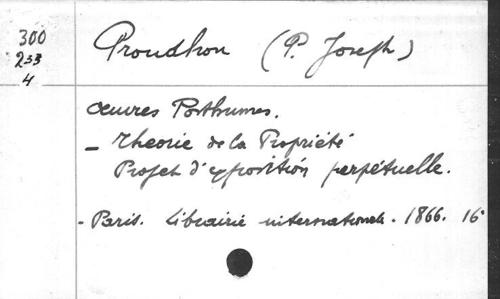 300
233
4
Proudhon (P. Joseph)
Œuvres Posthumes.
- Theorie de la Propriété
Projet d'exposition perpétuelle.
- Paris. Librairie internationale. 1866. 16°